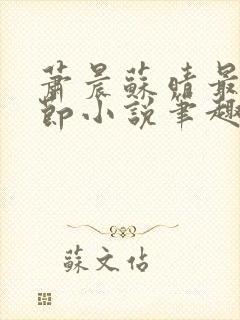 蕭晨蘇晴最
節小說筆趣
蘇文佑